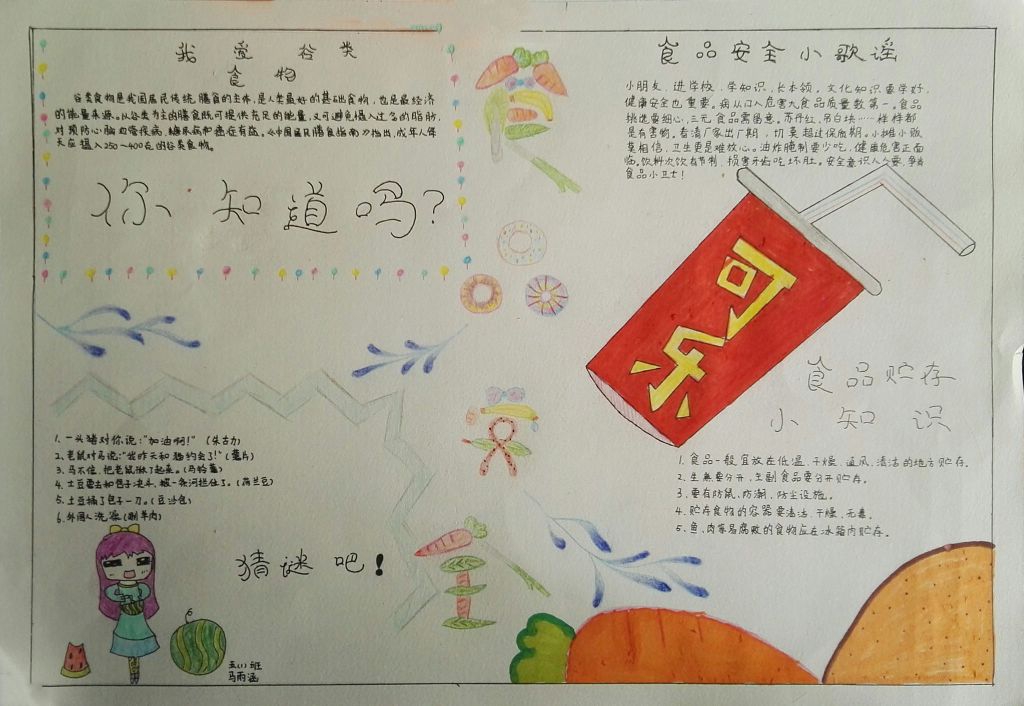 我 爱 谷 类
食 物
谷类食物是我国居民传统膳食的主体,是人类最好的基础食物,也是最经济
的能量来源。以谷类为主的膳食既可提供充足的能量,又可避免摄入过多的脂肪,
对预防心脑血管疾病、糖尿病和癌症有益。《中国居民膳食指南》指出,成年人每
天应摄入250~400克的谷类食物。
你 知 道 吗?
1. 一头猪对你说:"加油啊!"(朱古力)
2. 老鼠对马说:"我昨天和 约会了!"(薯片)
3. 马不信,把老鼠 了起来。(马铃薯)
4. 土豆要去和包子决斗,被一条河拦住了。(荷兰豆)
5. 土豆捅了包子一刀。(豆沙包)
6. 外国人洗澡(涮羊肉)
猜 谜 吧!
五(1)班
马雨涵
食品安全小歌谣
小朋友,进学校,学知识,长本领。文化知识要学好,
健康安全也重要。病从口入危害大食品质量数第一。食品
挑选要细心,三元食品需留意。苏丹红、吊白块……样样都
是有害物。看清厂家出厂期,切莫超过保质期。小摊小贩
莫相信,卫生更是难放心。油炸腌制要少吃,健康危害正面
临。饮料饮有节制,损害牙齿吃坏肚。安全意识人人要,争当
食品小卫士!
可乐
食品贮存
小 知 识
1. 食品一般宜放在低温、干燥、通风、清洁的地方贮存。
2. 生熟要分开,主副食品要分开贮存。
3. 要有防鼠、防潮、防尘设施。
4. 贮存食物的容器要清洁、干燥、无毒。
5. 鱼、肉等易腐败的食物应在冰箱内贮存。